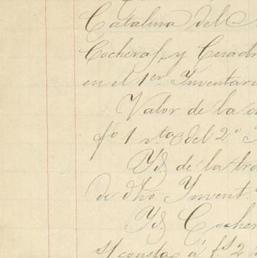 Catalina del
Cocheras, y Cuadr
en el 1er Inventari
Valor de la c
fo 1 vto del 2o I
Yd de la tra
de dho Invent
Yd Cocher
sf consta á fs 2